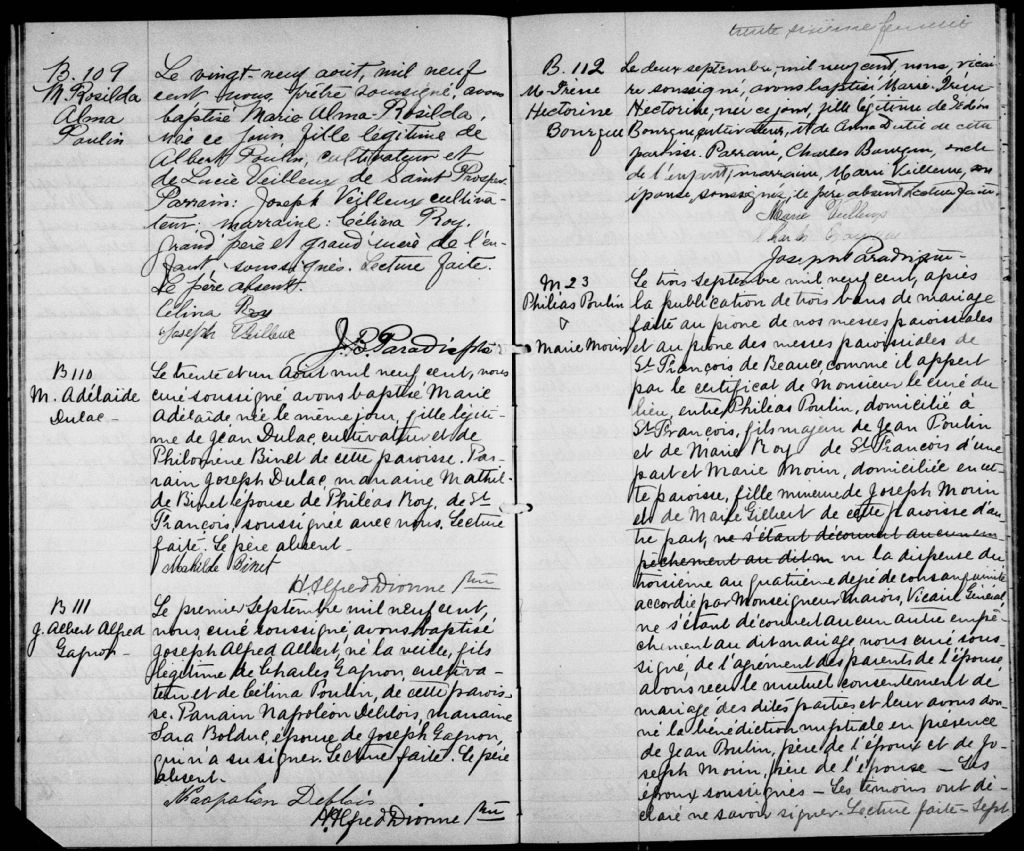 B. 109
M. Rosilda
Alma
Poulin
Le vingt-neuf août, mil neuf
cent nous, prêtre soussigné, avons
baptisé Marie Alma-Rosilda,
née ce jour, fille légitime de
Albert Poulin, cultivateur et
de Lucie Veilleux de Saint Prosper.
Parrain: Joseph Veilleux cultiva-
teur, marraine: Célina Roy.
grand'père et grand'mère de l'en-
fant soussignés. Lecture faite.
Le père absent.
Célina Roy
Joseph Veilleue
J. B. Paradis ptre
B 110
M. Adélaïde
Dulac
Le trente et un Août mil neuf cent, nous
curé soussigné avons baptisé Marie
Adélaïde née le même jour, fille légiti-
me de Jean Dulac, cultivateur et de
Philomène Binet de cette paroisse. Par-
rain Joseph Dulac, marraine Mathil-
de Binet épouse de Philéas Roy, de St
François, soussignée avec nous. Lecture
faite. Le père absent.
Mathilde Binet
H. Alfred Dionne Ptre
B 111
J. Albert Alfred
Gagnon
Le premier Septembre mil neuf cent,
nous, curé soussigné, avons baptisé
Joseph Alfred Albert, né la veille, fils
légitime de Charles Gagnon, cultiva-
teur et de Célina Poulin, de cette parois-
se. Parrain Napoléon Deblois, marraine
Sara Bolduc, épouse de Joseph Gagnon,
qui n'a su signer. Lecture faite. Le père
absent.
Naapalien Deblois
H. Alfred Dionne Ptre
trente sixième feuillet
B. 112
M. Irène
Hectorine
Bourque
Le deux septembre, mil neuf cent, nous, vicai-
re soussigné, avons baptisé Marie-Irène
Hectorine, née ce jour, fille légitime de
Bourque cultivateur, et de Anna Dutil de cette
paroisse. Parrain, Charles Bourque, oncle
de l'enfant, marraine, Marie Veilleux, son
épouse, soussignés, le père absent. Lecture faite.
Marie Veilleux
Charles
Joseph Paradis ptre
M 23
Philéas Poulin
&
Marie Morin
Le trois septembre mil neuf cent, après
la publication de trois bans de mariage
faite au prône de nos messes paroissiales
et au prône des messes paroissiales de
St François de Beauce, comme il appert
par le certificat de Monsieur le curé du
lieu, entre Philéas Poulin, domicilié à
St François, fils majeur de Jean Poulin
et de Marie Roy de St François d'une
part et Marie Morin, domiciliée en cet-
te paroisse, fille mineure de Joseph Morin
et de Marie Gilbert de cette paroisse d'au-
tre part, ne s'étant découvert aucun em-
pêchement au dit m vu la dispense du
troisième au quatrième degré de consanguinité
accordée par Monseigneur Marois, Vicaire Général,
ne s'étant découvert aucun autre empê-
chement au dit mariage, nous curé sous-
signé, de l'agrément des parents de l'épouse,
avons reçu le mutuel consentement de
mariage des dites parties et leur avons don-
né la bénédiction nuptiale en présence
de Jean Poulin, père de l'époux et de Jo-
seph Morin, père de l'épouse — Les
époux soussignés — Les témoins ont dé-
claré ne savoir signer. Lecture faite — Sept